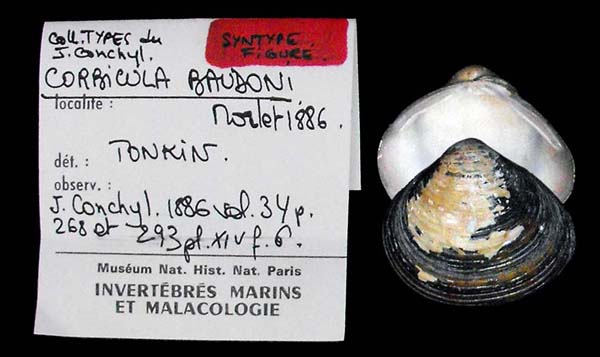 Coll. TYPES du
J. Conchyl.
SYNTYPE
FIGURE.
CORBICULA BAUDONI
localité :
Morlet 1886.
dét. : TONKIN.
observ. :
J. Conchyl. 1886 vol. 34 p.
268 et 293 pl. XIV f. 6.
Muséum Nat. Hist. Nat. Paris
INVERTÉBRÉS MARINS
ET MALACOLOGIE